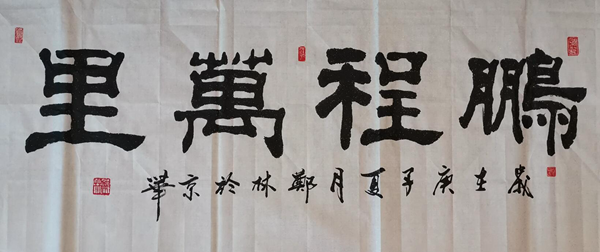 鵬程萬里
歲在庚子夏月鄭林於京華